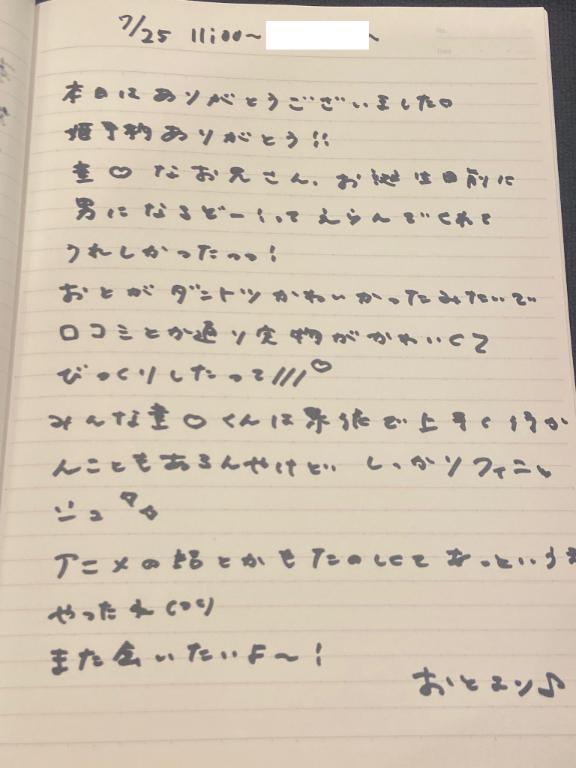 7/25 11:00〜 〜
本日はありがとうございました○
姫予約ありがとう!!
童○なお兄さん、お誕生日前に
男になるぞー!ってえらんでくれて
うれしかったっっ!
おとがダントツかわいかったみたいで
口コミとか通り実物がかわいくて
びっくりしたって///♡
みんな童○くんは緊張で上手く行か
んこともあるんやけど、しっかりフィニッ
シュ
アニメの話とかもたのしくてあっという
やったね
また会いたいよ〜!
おとより♪